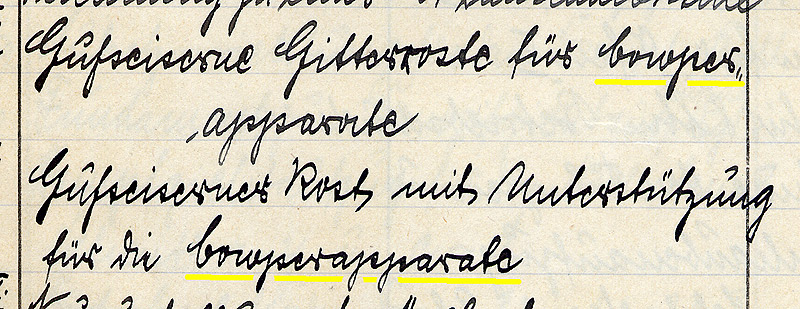 Gußeiserne Gitterroste für Cowper„
apparate
Gußeiserner Rost mit Unterstützung
für die Cowperapparate